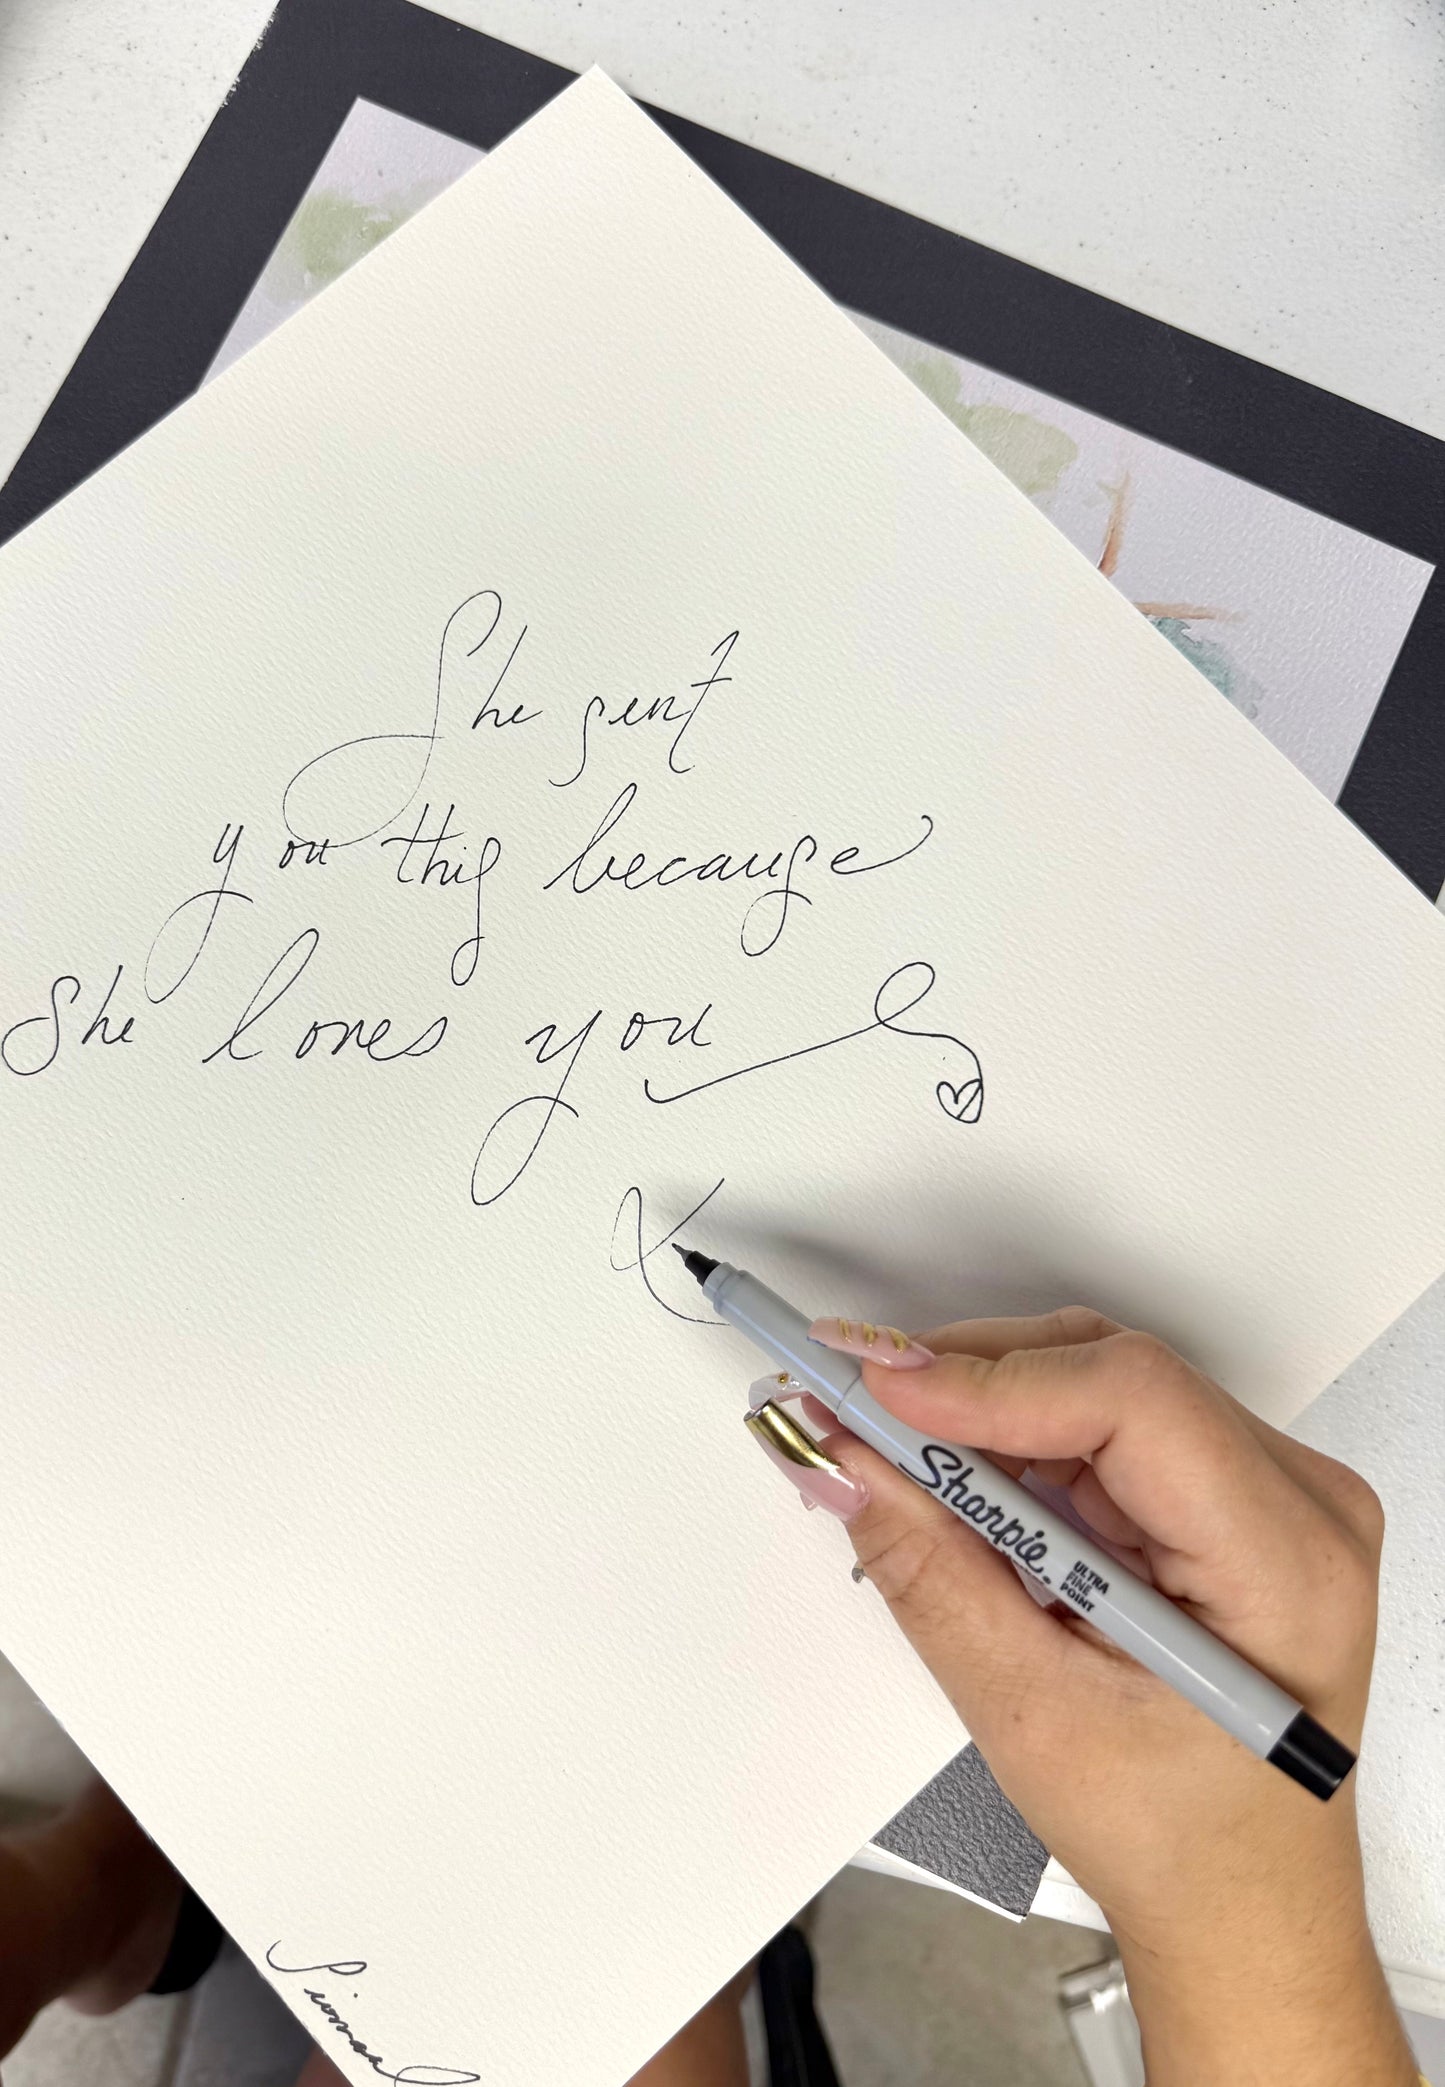 She sent
you this because
She loves you
X
Sharpie.
ULTRA
FINE
POINT